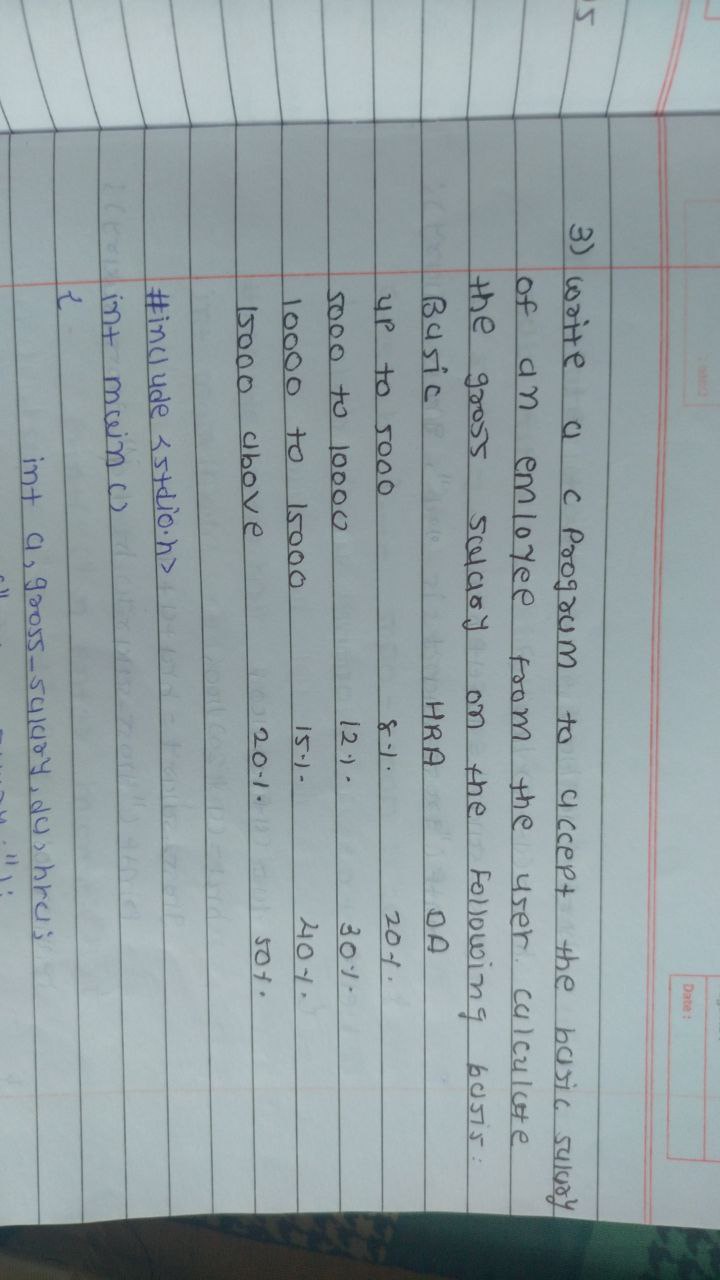 Date :
5
3) write a c program to accept the basic salary
of an emloyee from the user. calculate
the gross salary on the following basis:
Basic HRA DA
up to 5000 8% 20%.
5000 to 10000 12% 30%.
10000 to 15000 15% 40%.
15000 above 20% 50%.
#include <stdio.h>
int main ()
{
int a, gross_salary, da, hra;